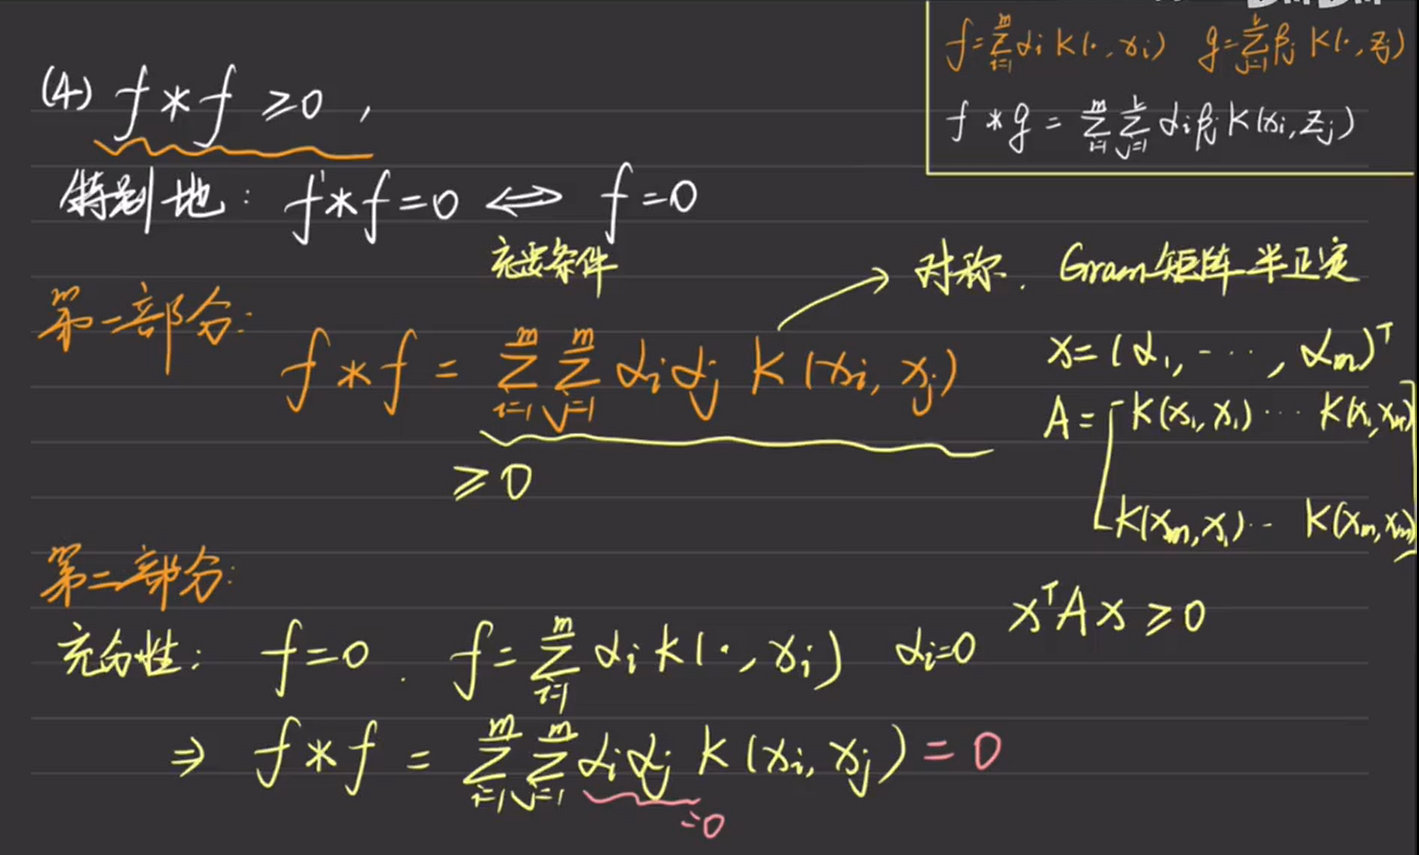 f=∑_{i=1}^{m} α_i K(·, x_i)  g=∑_{j=1}^{k} β_j K(·, z_j)
f * g = ∑_{i=1}^{m} ∑_{j=1}^{k} α_i β_j K(x_i, z_j)
(4) f * f ≥ 0 ,
特别地: f * f = 0 ⇔ f = 0
充要条件
→ 对称. Gram矩阵半正定
第一部分:
f * f = ∑_{i=1}^{m} ∑_{j=1}^{m} α_i α_j K(x_i, x_j)
≥ 0
x = (α_1, ···, α_m)^T
A = [ K(x_1, x_1) ··· K(x_1, x_m)
K(x_m, x_1) ·· K(x_m, x_m) ]
x^T A x ≥ 0
第二部分:
充分性: f = 0 . f = ∑_{i=1}^{m} α_i K(·, x_i)  α_i = 0
⇒ f * f = ∑_{i=1}^{m} ∑_{j=1}^{m} α_i α_j K(x_i, x_j) = 0
=0